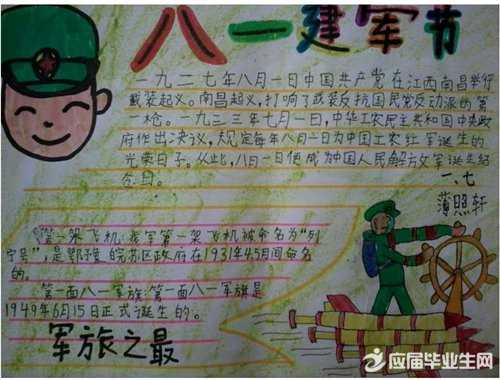 八一建军节
一九二七年八月一日中国共产党在江西南昌举行
武装起义。南昌起义,打响了武装反抗国民党反动派的第
一枪。一九三三年七月一日,中华工农民主共和国中央政
府作出决议,规定每年八月一日为中国工农红军诞生的
光荣日子。从此,八月一日便成为中国人民解放军诞生纪
念日。
一、七
薄照轩
第一架飞机:我军第一架飞机被命名为"列
宁号",是鄂豫皖苏区政府在1931年4.5月间命名
的。
第一面八一军旗:第一面八一军旗是
1949年6月15日正式诞生的。
军旅之最
应届毕业生网